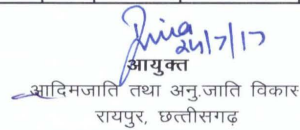 24/7/17
आयुक्त
आदिमजाति तथा अनु.जाति विकास
रायपुर, छत्तीसगढ़